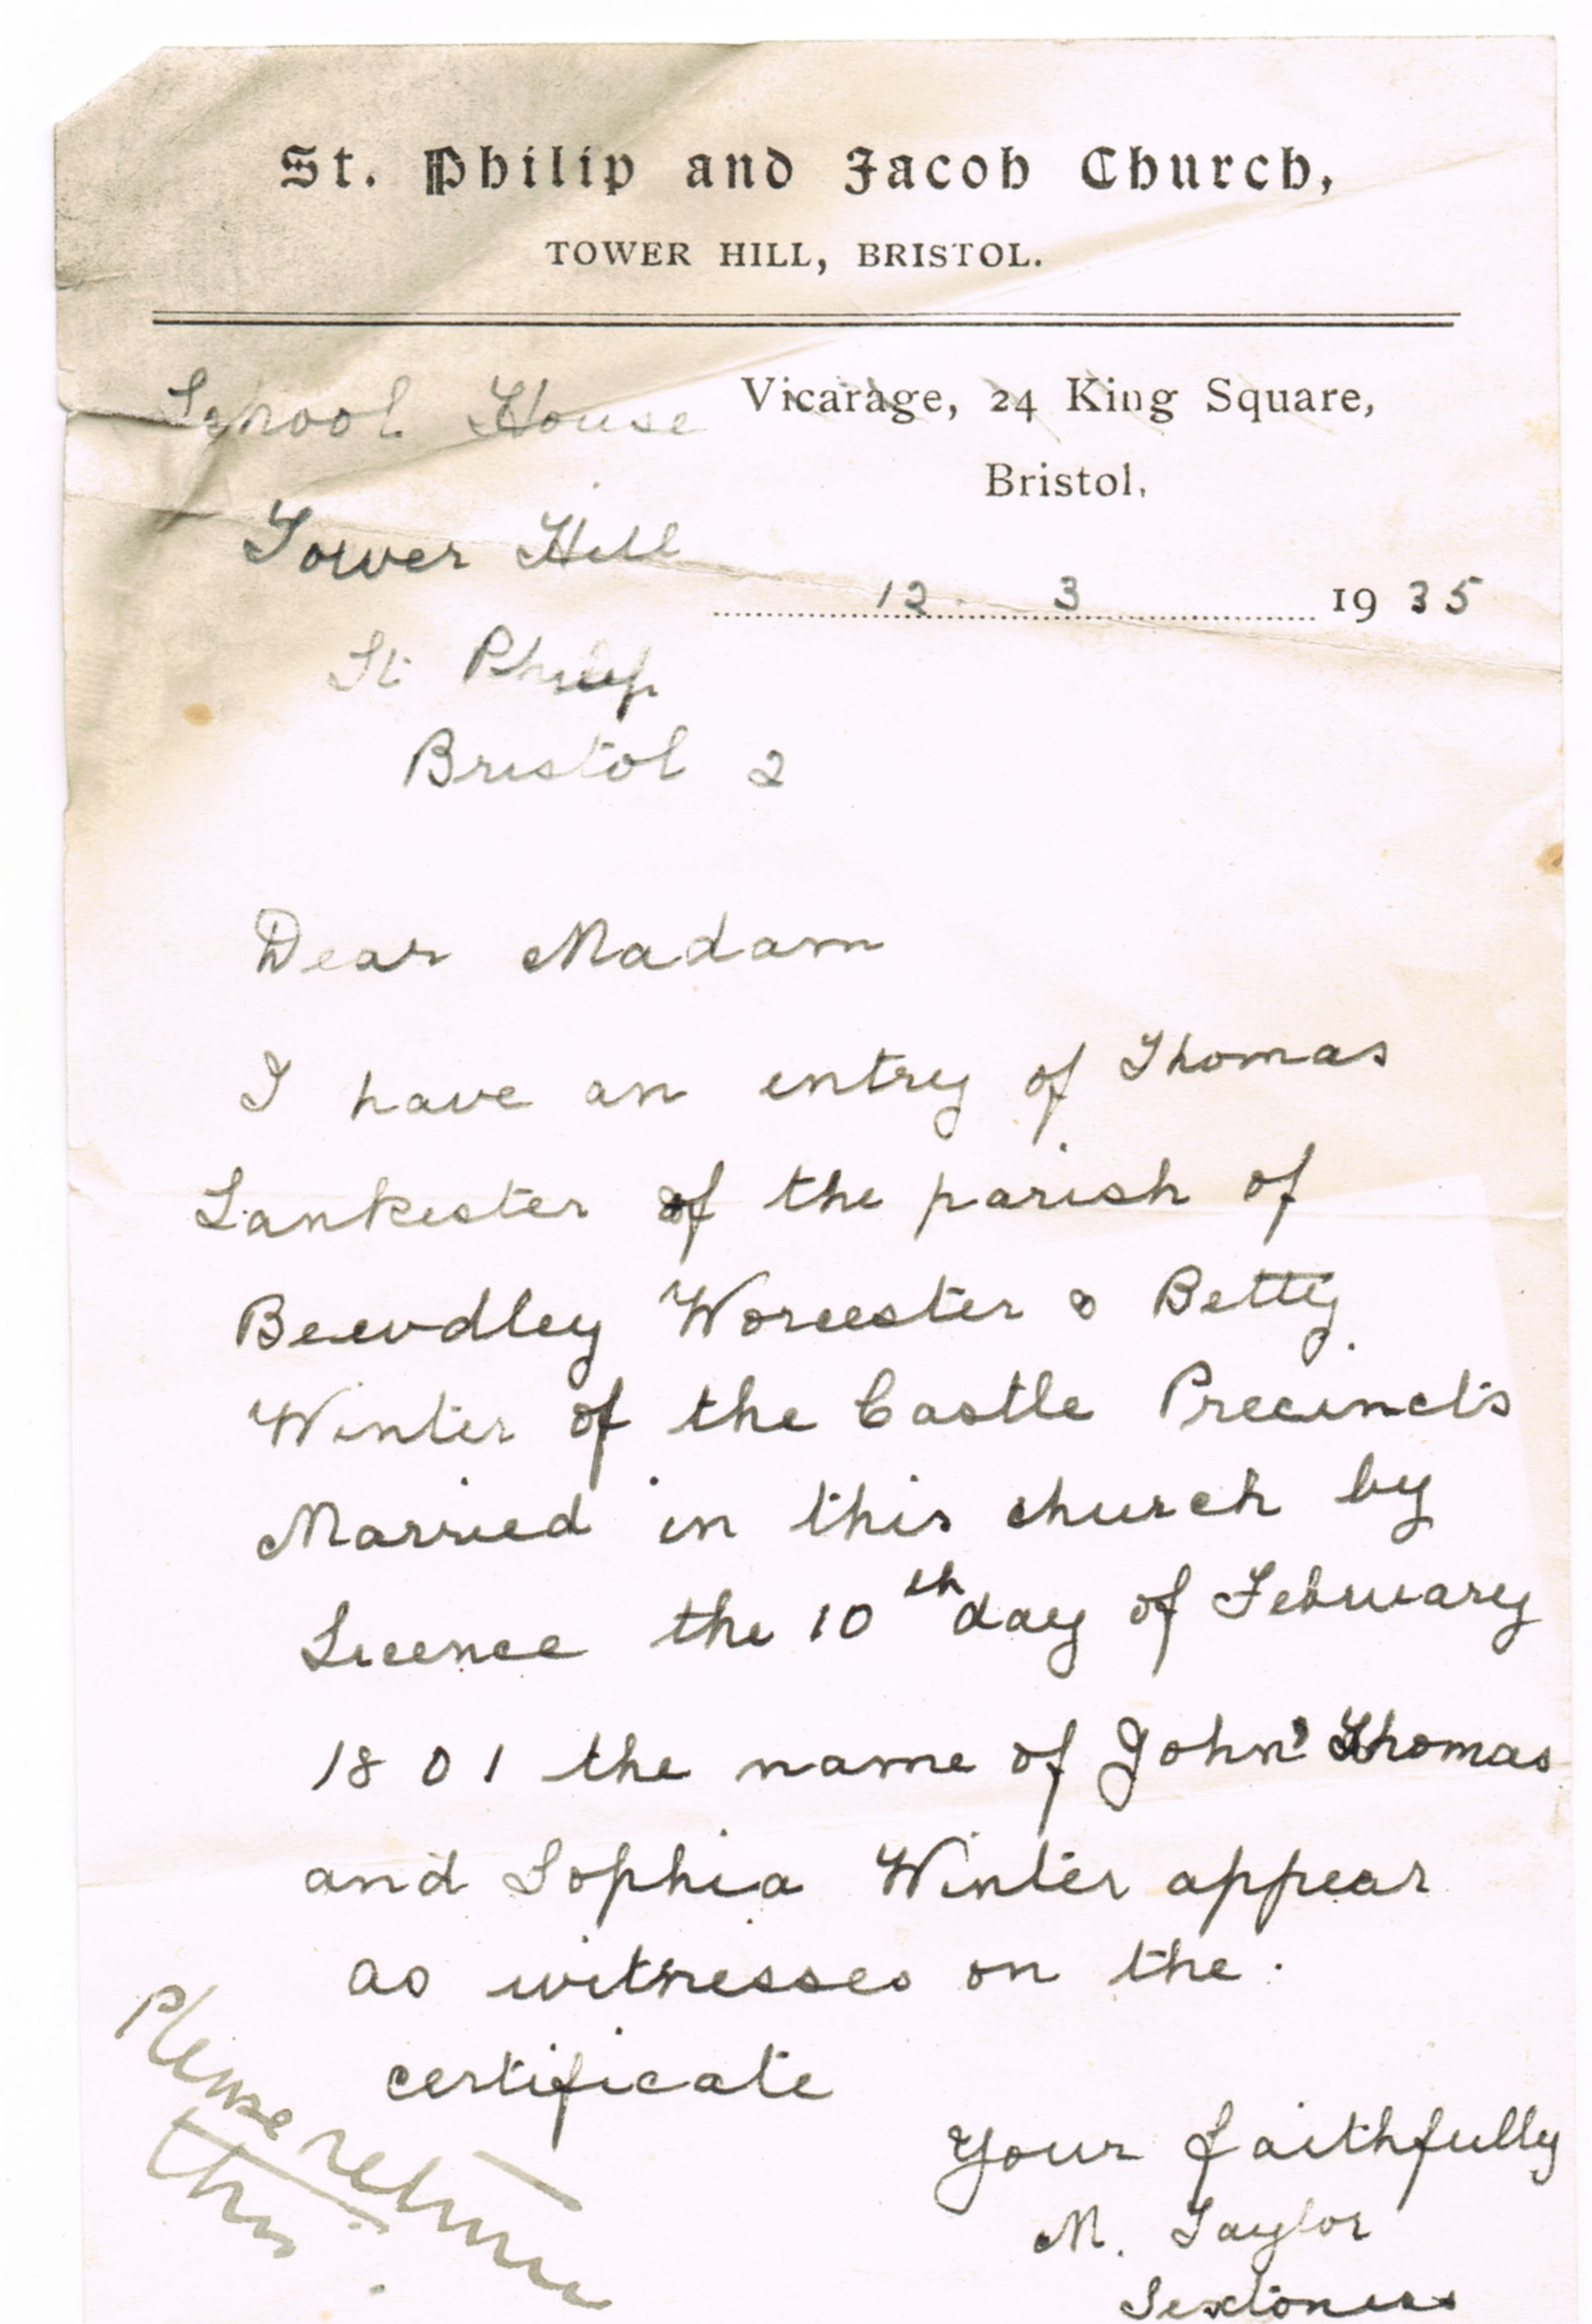 St. Philip and Jacob Church,
TOWER HILL, BRISTOL.
School House
Vicarage, 24 King Square,
Bristol,
Tower Hill
12 . 3 1935
St Philip
Bristol 2
Dear Madam
I have an entry of Thomas
Lankester of the parish of
Bewdley Worcester & Betty
Winter of the Castle Precincts
Married in this church by
Licence the 10th day of February
1801 the name of John Thomas
and Sophia Winter appear
as witnesses on the
certificate
Your faithfully
M. Taylor
Sextoness
Please return
this